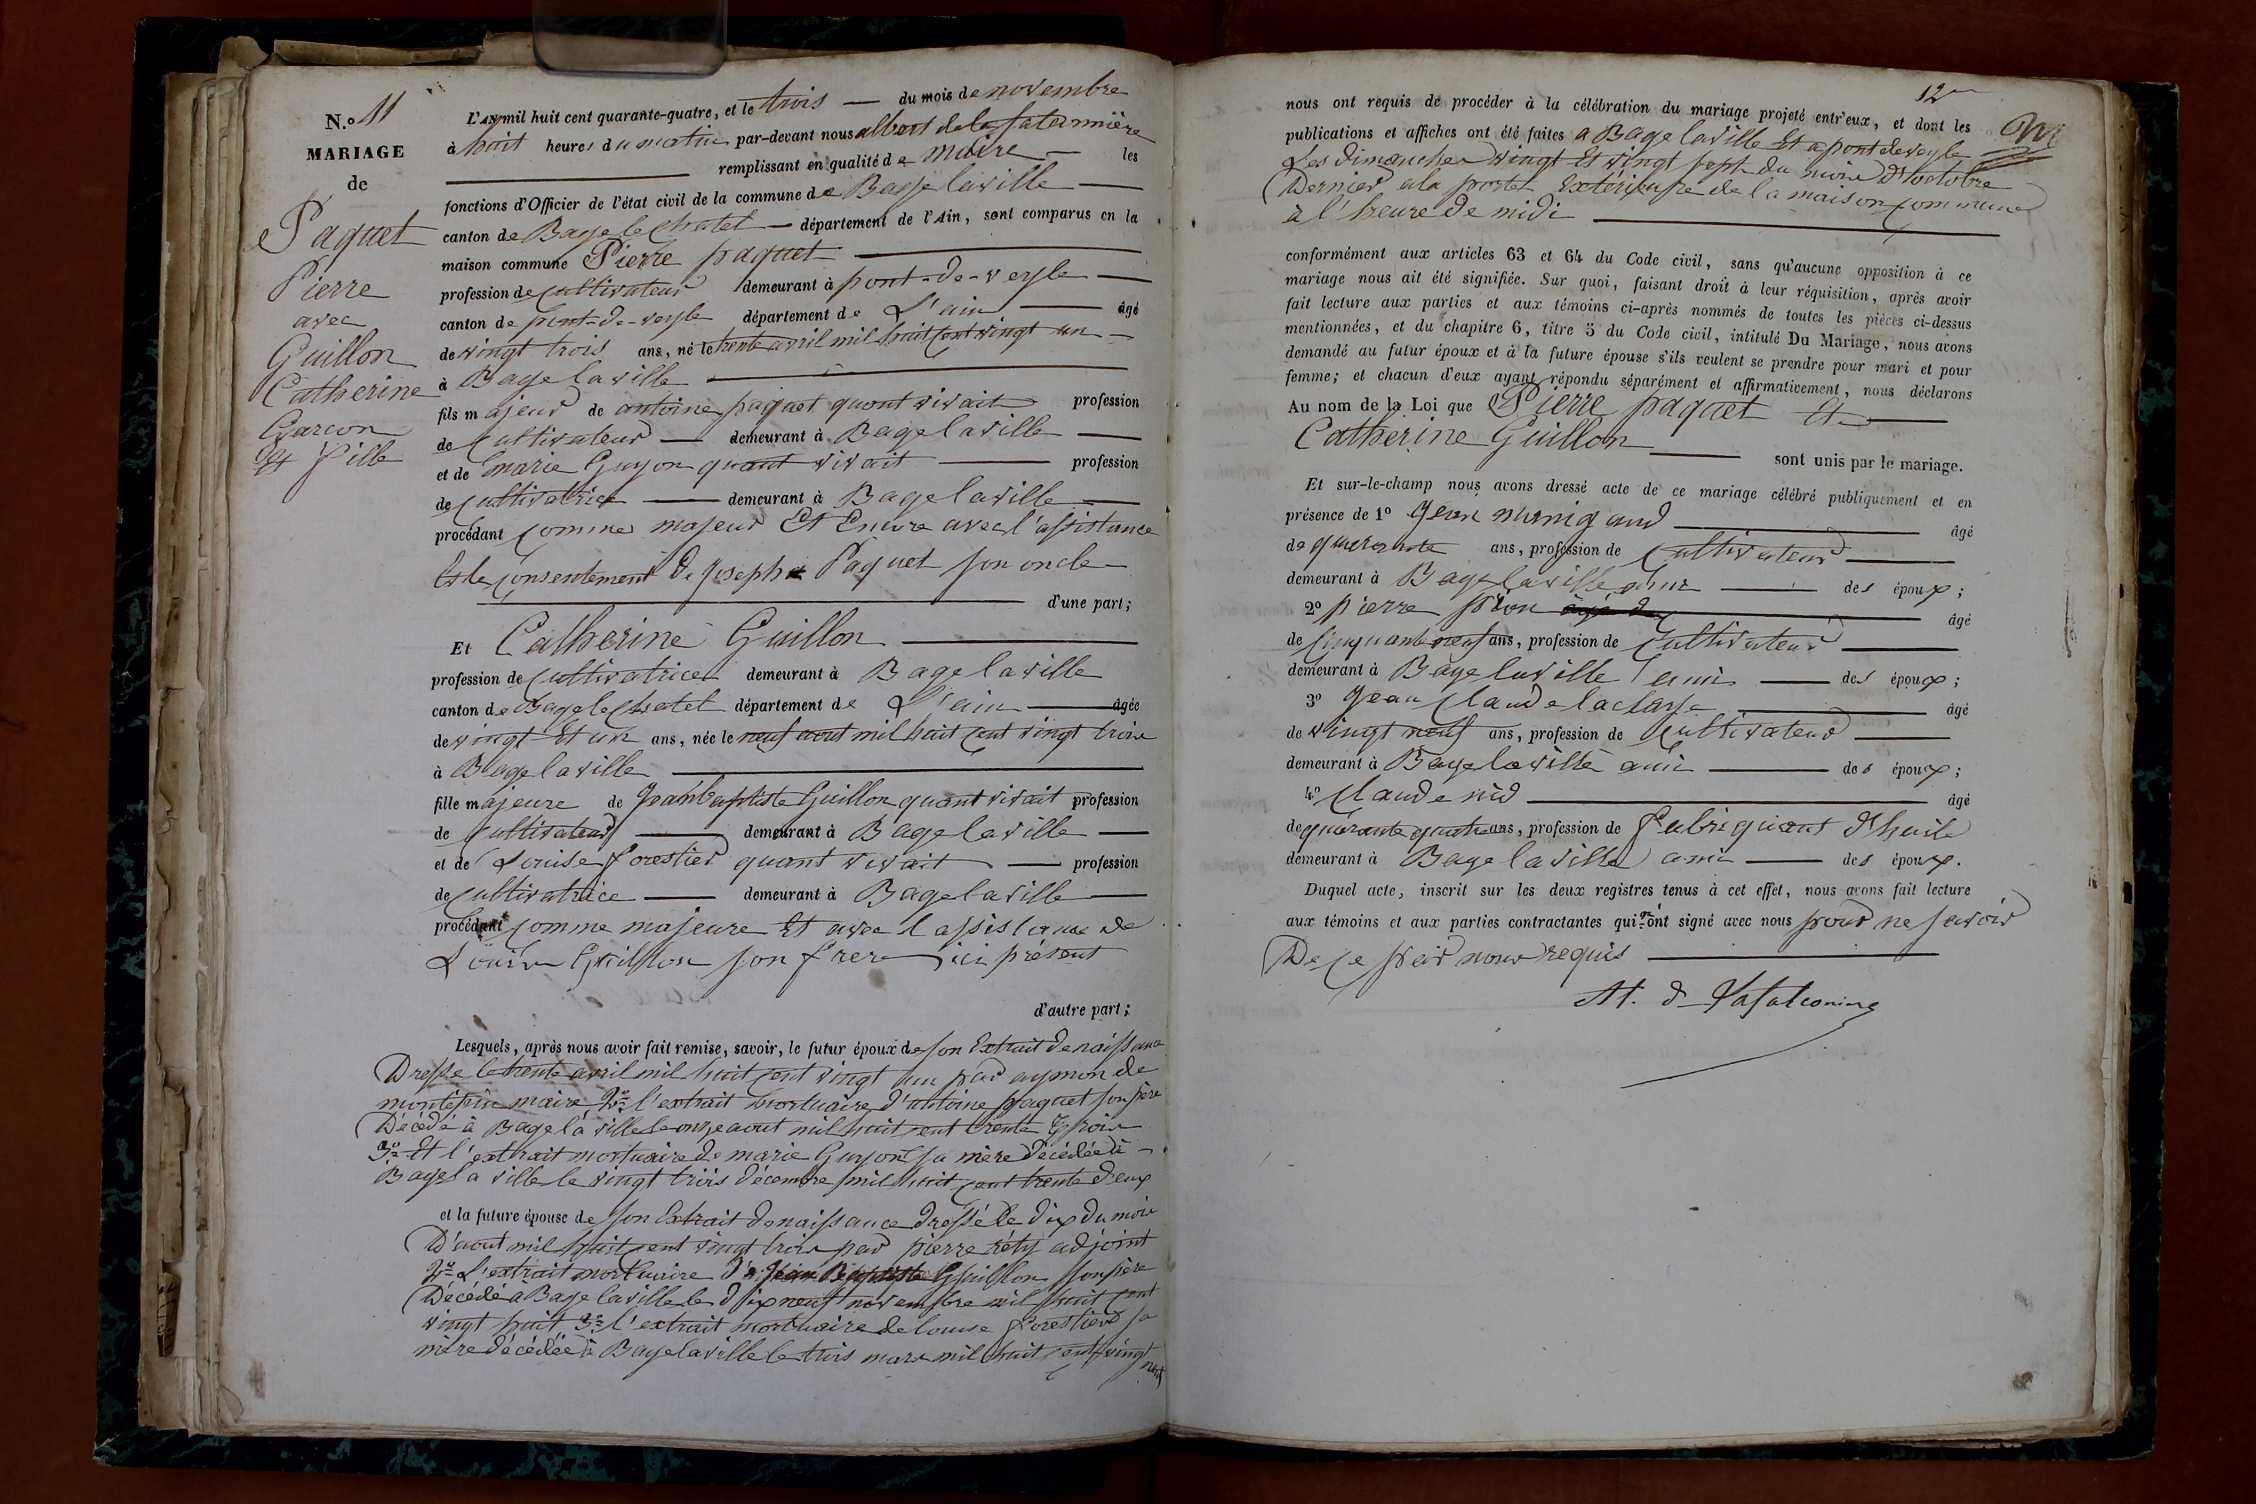 N.o 11
MARIAGE
de
Paquet
Pierre
avec
Guillon
Catherine
Garcon
et fille
L'An mil huit cent quarante-quatre, et le trois du mois de novembre
à huit heures du matin par-devant nous albert de la falconnière
remplissant en qualité de maire les
fonctions d'Officier de l'état civil de la commune de Bage laville
canton de Bage le Chatel département de l'Ain, sont comparus en la
maison commune Pierre paquet
profession de cultivateur demeurant à pont-de-veyle
canton de pont-de-veyle département de L'ain âgé
de vingt trois ans, né le trente avril mil huit cent vingt un
à Bage laville
fils majeur de antoine paquet quant vivait profession
de Cultivateur demeurant à Bage laville
et de marie Guyon quant vivait profession
de cultivatrice demeurant à Bage laville
procédant comme majeur Et Encore avec l'assistance
Et le consentement de Joseph Paquet son oncle
d'une part;
Et Catherine Guillon
profession de cultivatrice demeurant à Bage laville
canton de Bage le Chatel département de L'ain âgée
de vingt Et un ans, née le neuf aout mil huit cent vingt trois
à Bage laville
fille majeure de Jean baptiste Guillon quant vivait profession
de cultivateur demeurant à Bage laville
et de Louise forestier quant vivait profession
de cultivatrice demeurant à Bage laville
procédant comme majeure Et avec l assistance de
Louis Guillon son frere ici présent
d'autre part;
Lesquels, après nous avoir fait remise, savoir, le futur époux de son Extrait de naissance
Dresse le trente avril mil huit cent vingt un par aymon de
montépin maire 2o l'extrait mortuaire d'antoine paquet son père
Décédé à Bage la ville le onze aout mil huit cent trente trois
3o Et l'extrait mortuaire de marie Guyon sa mère décédée à
Bage la ville le vingt trois décembre mil huit cent trente deux
et la future épouse de son Extrait de naissance dressé le dix du mois
D'aout mil huit cent vingt trois par pierre réty adjoint
2o L'extrait mortuaire de Jean Baptiste Guillon son père
Décédé à Bage laville le dix neuf novembre mil huit cent
vingt huit 3o l'extrait mortuaire de louise forestier sa
mère décédée à Bage laville le trois mars mil huit cent vingt
neuf
12
nous ont requis de procéder à la célébration du mariage projeté entr'eux, et dont les
publications et affiches ont été faites a Bage laville Et a pont de veyle
Les dimanches vingt Et vingt sept du mois d'octobre
Dernier a la porte Extérieure de la maison commune
a l'heure de midi
conformément aux articles 63 et 64 du Code civil, sans qu'aucune opposition à ce
mariage nous ait été signifiée. Sur quoi, faisant droit à leur réquisition, après avoir
fait lecture aux parties et aux témoins ci-après nommés de toutes les pièces ci-dessus
mentionnées, et du chapitre 6, titre 5 du Code civil, intitulé Du Mariage, nous avons
demandé au futur époux et à la future épouse s'ils veulent se prendre pour mari et pour
femme; et chacun d'eux ayant répondu séparément et affirmativement, nous déclarons
Au nom de la Loi que Pierre paquet Et
Catherine Guillon
sont unis par le mariage.
Et sur-le-champ nous avons dressé acte de ce mariage célébré publiquement et en
présence de 1o Jean manigand âgé
de quarante ans, profession de Cultivateur
demeurant à Bage laville amis des époux;
2o pierre âgé
de Cinquante neuf ans, profession de Cultivateur
demeurant à Bage laville amis des époux;
3o Jean Claude âgé
de vingt neuf ans, profession de Cultivateur
demeurant à Bage laville amis des époux;
4o Claude nid âgé
de quarante quatre ans, profession de fabriquant d'huile
demeurant à Bage laville amis des époux.
Duquel acte, inscrit sur les deux registres tenus à cet effet, nous avons fait lecture
aux témoins et aux parties contractantes qui n'ont signé avec nous pour ne savoir
De ce par nous requis
Al. de Lafalconnière